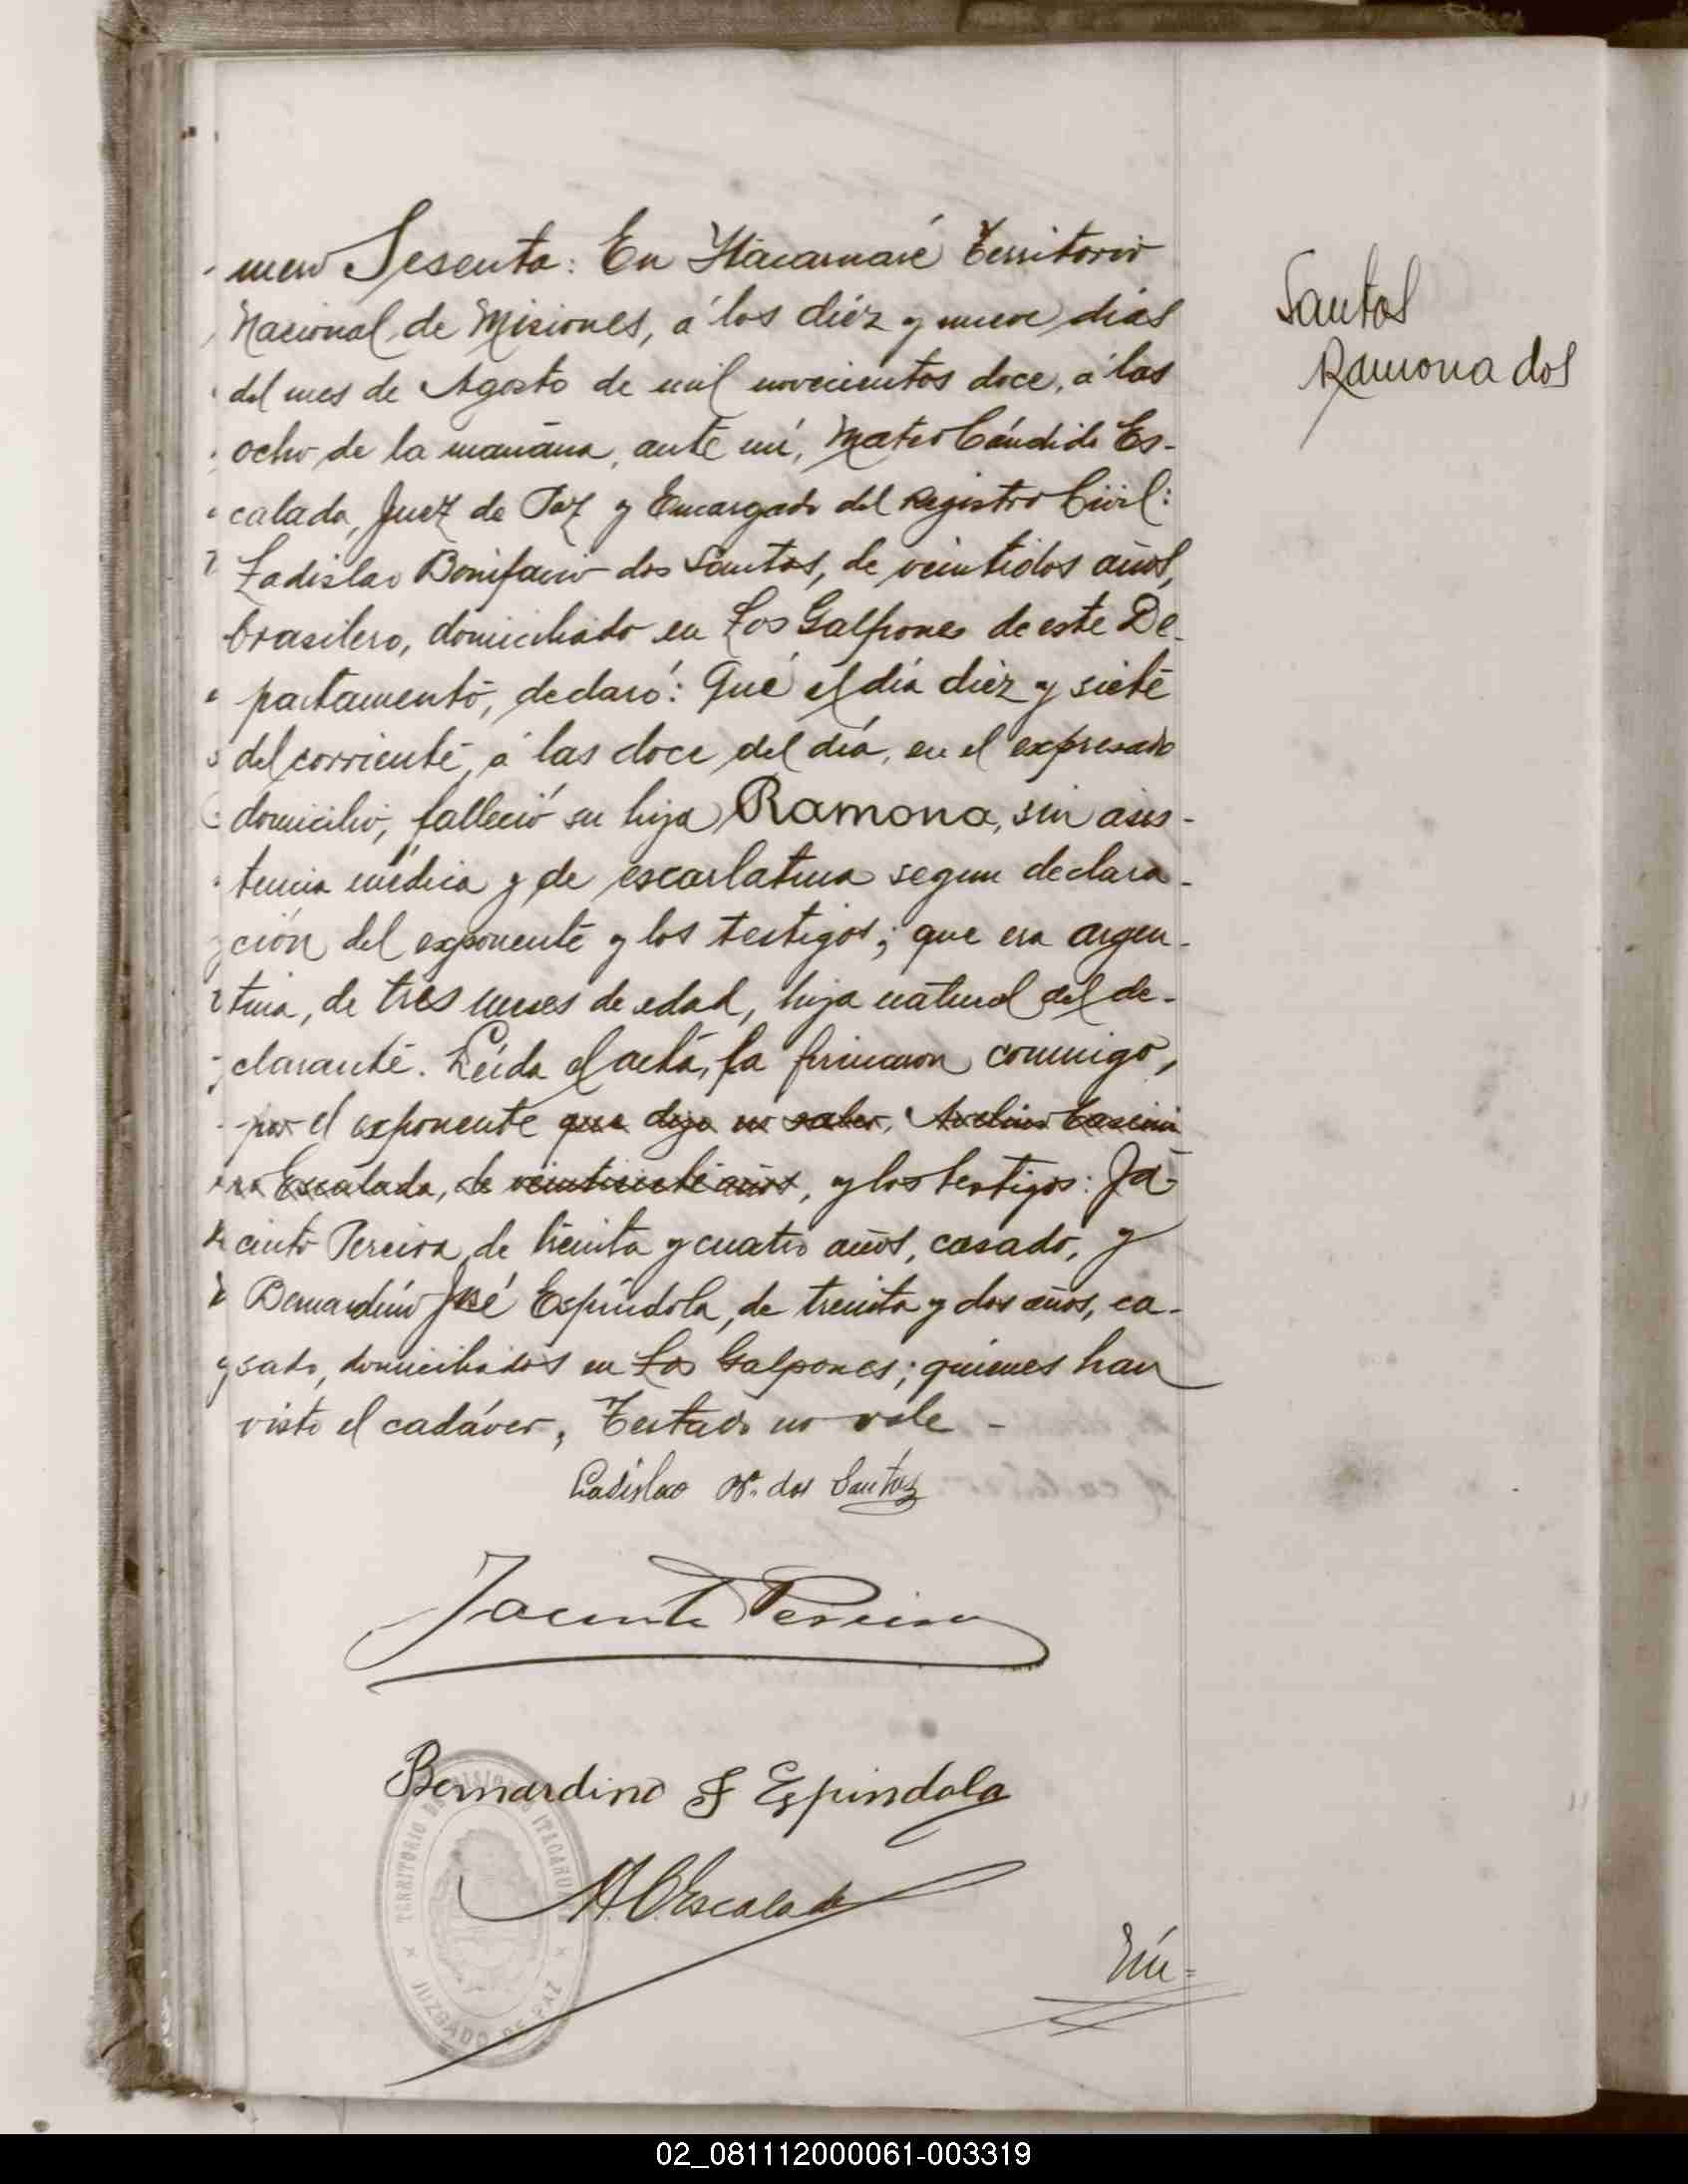 mero Sesenta: En Itacaruaré Territorio
Nacional de Misiones, á los diéz y nueve días
del mes de Agosto de mil novecientos doce, á las
ocho de la mañana, ante mí, Mateo Cándido Es-
calada, Juez de Paz y Encargado del Registro Civil:
Ladislao Bonifacio dos Santos, de veintidos años,
brasilero, domiciliado en Los Galpones de este De-
partamento, declaró: Qué el día diéz y siete
del corriente, á las doce del día, en el expresado
domicilio, falleció su hija Ramona, sin asis-
tencia médica y de escarlatina segun declara-
ción del exponente y los testigos; que era argen-
tina, de tres meses de edad, hija natural del de-
clarante. Leída el acta, la firmaron conmigo,
por el exponente que dijo no saber, Avelino Casimi
ro Escalada, de veintisiete años, y los testigos: Ja-
cinto Pereira, de treinta y cuatro años, casado, y
Bernardino José Espíndola, de treinta y dos años, ca-
sado, domiciliados en Los Galpones; quienes han
visto el cadáver, Testado no vale -
Ladislao B. dos Santos
Jacinto Pereira
Bernardino J Espindola
M. C. Escalada
TERRITORIO DE MISIONES ITACARUARE
JUZGADO DE PAZ
Nú=
Santos
Ramona dos
02_081112000061-003319